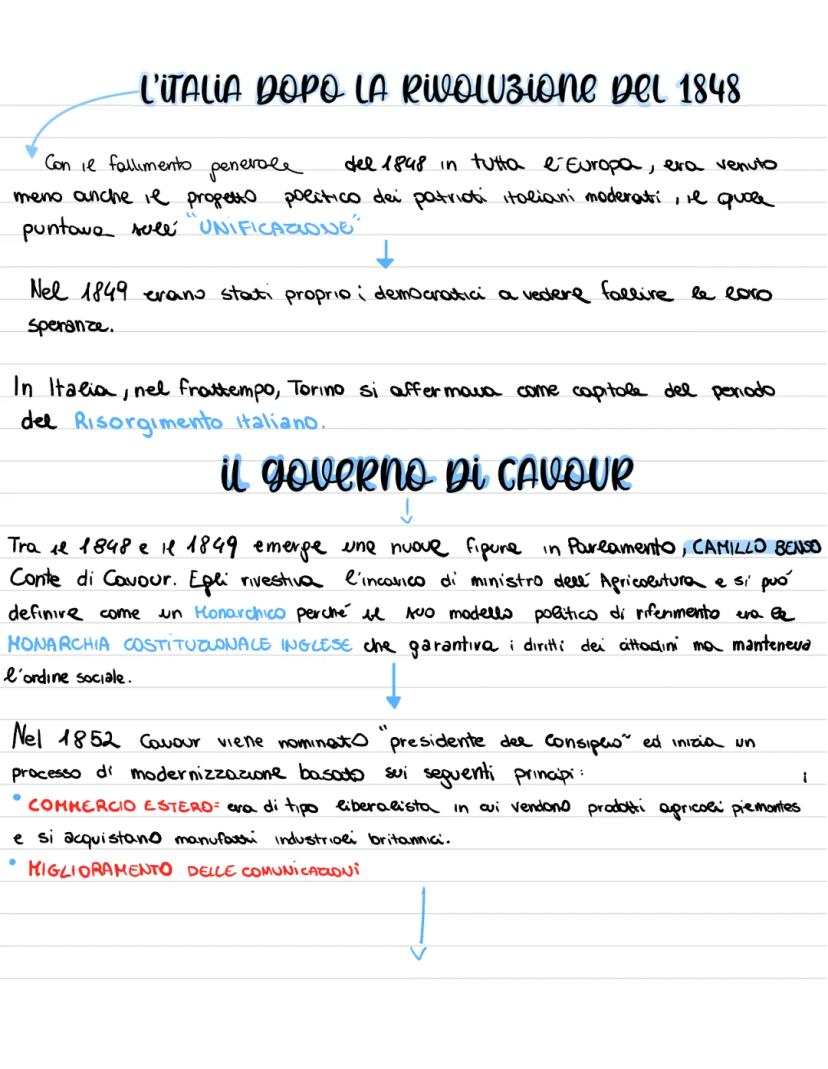 L'ITALIA DOPO LA RIVOLUZIONE DEL 1848
Con il fallimento generale del 1848 in tutta l'Europa, era venuto
meno anche il progetto politico dei patrioti italiani moderati, il quale
puntava sull' "UNIFICAZIONE"
Nel 1849 erano stati proprio i democratici a vedere fallire le loro
speranze.
In Italia, nel frattempo, Torino si affermava come capitale del periodo
del Risorgimento italiano.
IL GOVERNO DI CAVOUR
Tra il 1848 e il 1849 emerge una nuova figura in Parlamento, CAMILLO BENSO
Conte di Cavour. Egli rivestiva l'incarico di ministro dell' Agricoltura e si può
definire come un Monarchico perché il suo modello politico di riferimento era la
MONARCHIA COSTITUZIONALE INGLESE che garantiva i diritti dei cittadini ma manteneva
l'ordine sociale.
Nel 1852 Cavour viene nominato "presidente del Consiglio" ed inizia un
processo di modernizzazione basato sui seguenti principi:
• COMMERCIO ESTERO= era di tipo liberalista in cui vendono prodotti agricoli piemontes i
e si acquistano manufatti industriali britannici.
• MIGLIORAMENTO DELLE COMUNICAZIONI